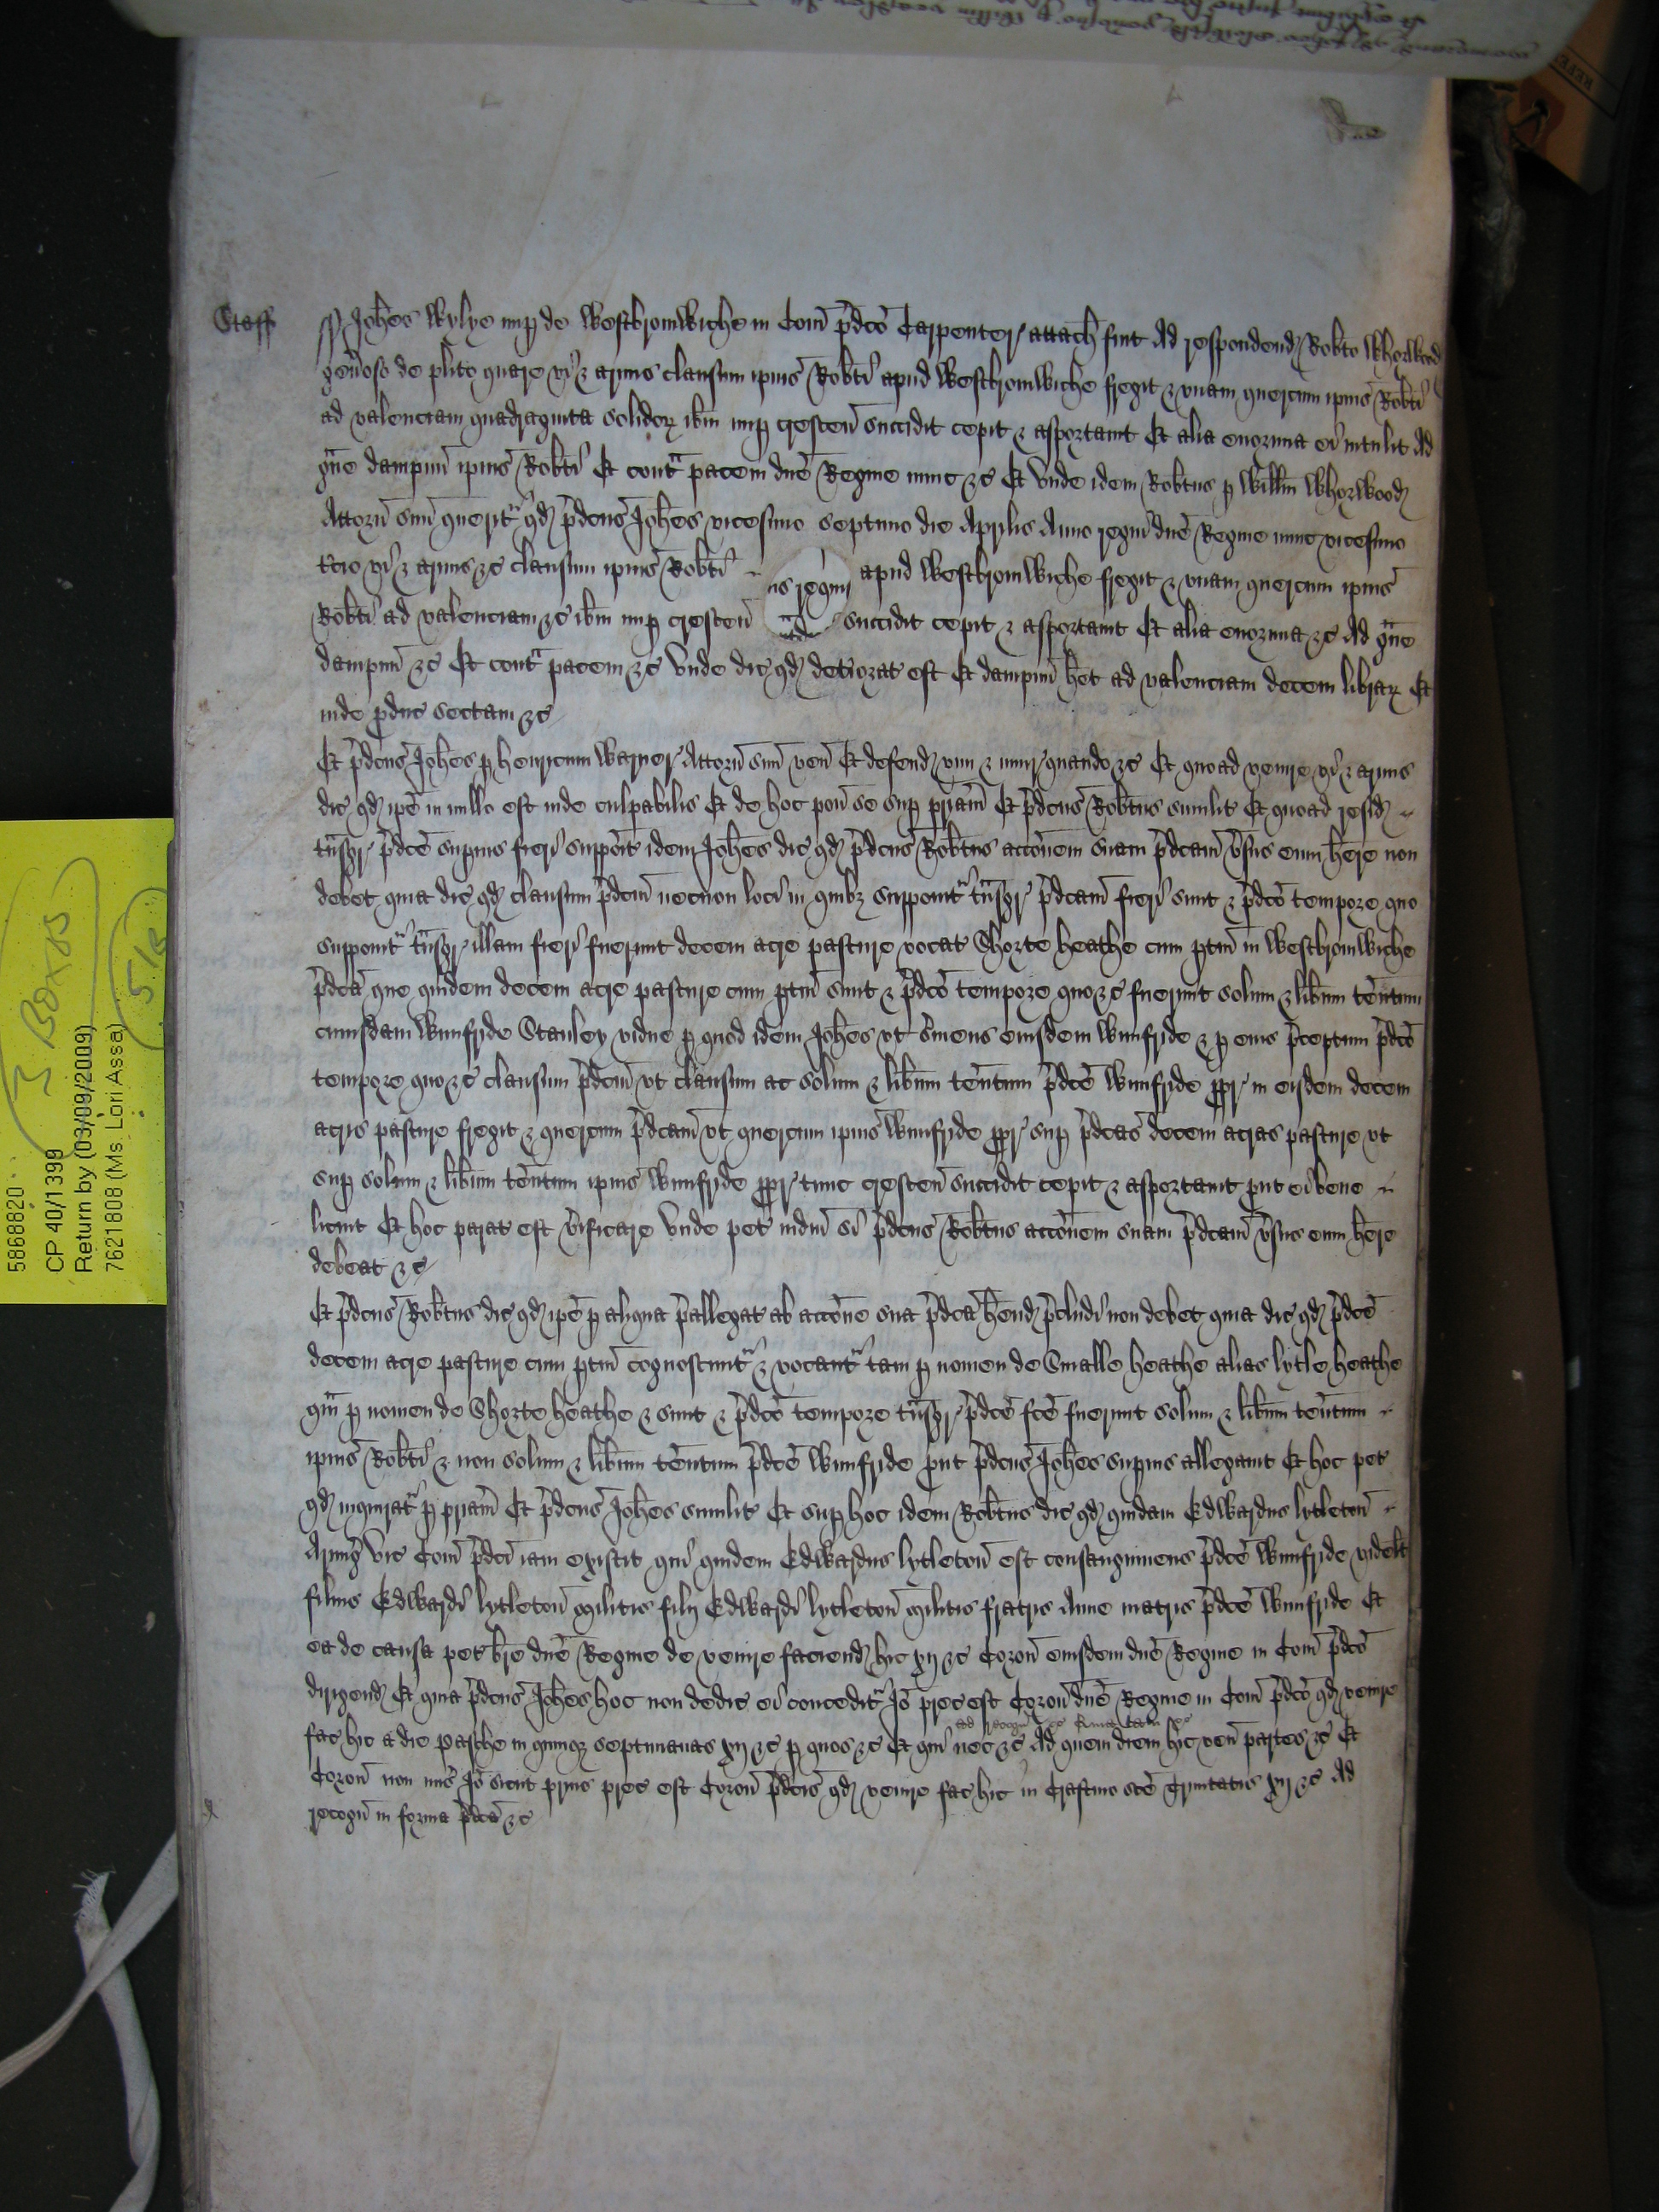 Staff ss Joħes Wylye nup de Westbromwiche in Com̃ p̃dco Carpenter attach̃ fuit Ad respondend Rob̃to Whorwood
gen̄oso de pl̃ito quare vi & armis clausum ip̄ius Rob̃ti apud Westbromwiche fregit & vnam quercum ip̄ius Rob̃ti
ad valenciam quadraginta solidor̨ ib̃m nup crescen̄ succidit cepit & asportauit Et alia enormia ei intulit Ad
g̃ue dampnu ip̄ius Rob̃ti Et cont̃ pacem dñe Regine nunc &c Et vnde idem Rob̃tus p Will̃m Whorwood
Attorn̄ suu querit' qd p̃dcus Joħes vicesimo septimo die Aprilis Anno regni dñe Regine nunc vicesimo
t̃cio vi & armis &c clausum ip̄ius Rob̃ti apud Westbromwiche fregit & vnam quercum ip̄ius
us regni
Rob̃ti ad valenciam &c ib̃m nup crescen̄ succidit cepit & asportauit Et alia enormia &c Ad g̃ue
dampnu &c Et cont̃ pacem &c Vnde dic qd deteriorat est Et dampnu h̃et ad valenciam decem librar̨ Et
inde p̃duc sectam &c
Et p̃dcus Joħes p Henricum Warner Attorn̄ suu ven̄ Et defend vim & iniur quando &c Et quoad venire vi & armis
dic qd ip̄e in nullo est inde culpabilis Et de hoc pon̄ se sup pr̃iam Et p̃dcus Rob̃tus similit̃ Et quoad resid
t̃nsgr p̃dce sup̃ius fieri supp̃oit idem Joħes dic qd p̃dcus Rob̃tus acc̃onem suam p̃dcam v̄sus eum h̃ere non
debet quia dic qd clausum p̃dcum necnon loci in quibȝ supponit' t̃nsgr p̃dcam fieri sunt & p̃dco tempore quo
supponit' t̃nsgr illam fieri fuerunt decem acre pasture vocat Shorte Heathe cum ptin̄ in Westbromwiche
p̃dca que quidem decem acre pasture cum ptin̄ sunt & p̃dco tempore quo &c fuerunt solum & lib̃um ten̄tum
cuiusdam Winifride Stanley vidue p quod idem Joħes vt s̃uiens eiusdem Winifride & p eius p̃ceptum p̃dco
tempore quo &c clausum p̃dcum vt clausum ac solum & lib̃um ten̄tum p̃dce Winifride ppr in eisdem decem
acris pasture fregit & quercum p̃dcam vt quercum ip̄ius Winifride ppr sup p̃dcas decem acras pasture vt
sup solum & lib̃um ten̄tum ip̄ius Winifride ppr tunc crescen̄ succidit cepit & asportauit put ei bene
licuit Et hoc parat est v̄ificare Vnde pet iudm̄ si p̃dcus Rob̃tus acc̃onem suam p̃dcam v̄sus eum h̃ere
debeat &c
Et p̃dcus Rob̃tus dic qd ip̄e p aliqua p̃allegat ab acc̃one sua p̃dca h̃end p̃cludi non debet quia dic qd p̃dce
decem acre pasture cum ptin̄ cognoscunt' & vocant' tam p nomen de Smalle Heathe alias lytle Heathe
q̃m p nomen de Shorte Heathe & sunt & p̃dco tempore t̃nsgr p̃dce fc̃e fuerunt solum & lib̃um ten̄tum
ip̄ius Rob̃ti & non solum & lib̃um ten̄tum p̃dce Winifride put p̃dcus Joħes sup̃ius allegauit Et hoc pet
qd inquirat' p pr̃iam Et p̃dcus Joħes similit̃ Et sup hoc idem Rob̃tus dic qd quidam Edwardus lytleton̄
Armig̃ vic Com̃ p̃dci iam existit qui quidem Edwardus lytleton̄ est consanguineus p̃dce Winifride videlt
filius Edwardi lytleton̄ militis filij Edwardi lytleton̄ militis fratris Anne matris p̃dce Winifride Et
ea de causa pet br̃e dñe Regine de venire faciend hic xij &c Coron̄ eiusdem dñe Regine in Com̃ p̃dco
dirigend Et quia p̃dcus Joħes hoc non dedic ei concedit' Jō prec est Coron̄ dñe Regine in Com̃ p̃dco qd venire
fac hic a die Pasche in quinqȝ septimanas xij &c p quos &c Et qui nec &c ad recogn̄ &c Quia tam &c Ad quem diem hic ven̄ partes &c Et
Coron̄ non mis̃ Jō sicut prius prec est Coron̄ p̃dcis qd venire fac hic in Crastino sc̃e Trinitatis xij &c Ad
recogn̄ in forma p̃dca &c
3 Boxes
51B
58688820
CP 40/1399
Return by (03/09/2009)
7621808 (Ms. Lori Assa)
REFE